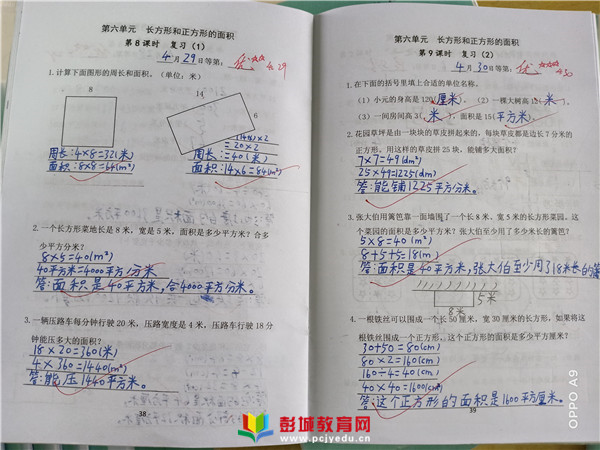 第六单元 长方形和正方形的面积
第 8 课时 复习（1）
4月29日等第：优 4.29
1.计算下面图形的周长和面积。（单位：米）
8
14
6
(14+6)×2
=20×2
周长：4×8=32(米)
周长：=40(米)
面积：8×8=64(m²)
面积：14×6=84(m²)
2.一个长方形菜地长是 8 米，宽是 5 米，面积是多少平方米？合多
少平方分米？
8×5=40(m²)
40平方米=4000平方分米
答：面积是40平方米，合4000平方分米。
3.一辆压路车每分钟行驶 20 米，压路宽度是 4 米，压路车行驶 18 分
钟能压多大的面积？
18×20=360(米)
4×360=1440(m²)
答：能压1440平方米。
38
第六单元 长方形和正方形的面积
第 9 课时 复习（2）
4月30日等第：优 4.30
1.在下面的括号里填上合适的单位名称。
（1）小元的身高是 120（厘米）。（2）一棵大树高 12（米）。
（3）一间房间高 3（米），面积是 15（平方米）。
2.花园草坪是由一块块的草皮拼起来的，每块草皮都是边长 7 分米的
正方形。用这样的草皮拼 25 块，能铺多大面积？
7×7=49(dm²)
25×49=1225(dm²)
答：能铺1225平方分米。
3.张大伯用篱笆靠一面墙围了一个长 8 米，宽 5 米的长方形菜园。这
个菜园的面积是多少平方米？张大伯至少用了多少米长的篱笆？
5×8=40(m²)
8+5+5=18(m)
答：面积是40平方米，张大伯至少用了18米长的篱
5米
8米
4.一根铁丝可以围成一个长 50 厘米，宽 30 厘米的长方形，如果将这
根铁丝围成一个正方形。这个正方形的面积是多少平方厘米？
30+50=80(cm)
80×2=160(cm)
160÷4=40(cm)
40×40=1600(cm²)
答：这个正方形的面积是1600平方厘米。
39
OPPO A9
彭城教育网
www.pcjyedu.cn